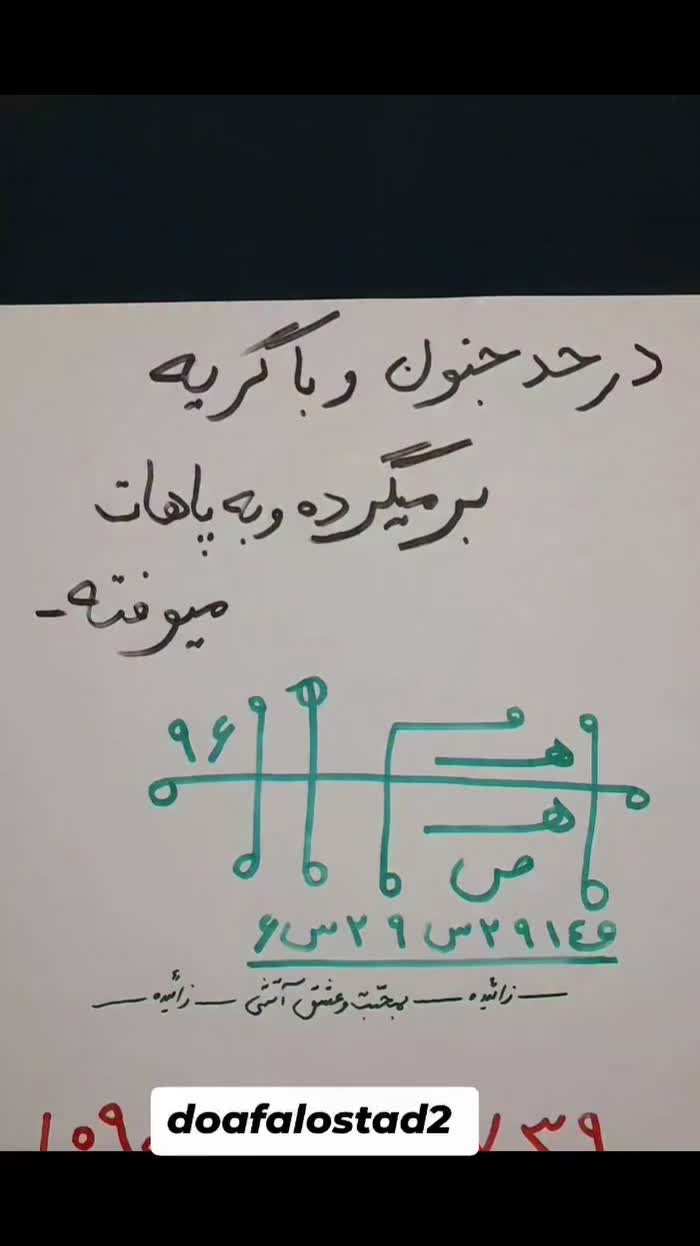 در حد جنون و با گریه
برمیگرده و به پاهات
میوفته -
۹۶
هـ
هـ
ص
۶ س ۲ ۹ س ۲ ۹ ۱ ٤
زائیده محبت و عشق آتشی زائیده
doafalostad2